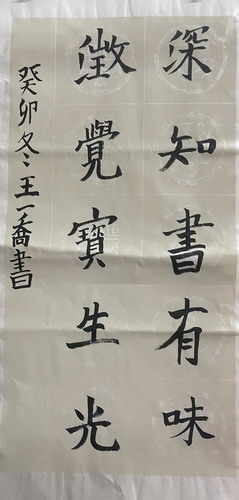 深知書有味
徵覺寶生光
癸卯冬王一喬書